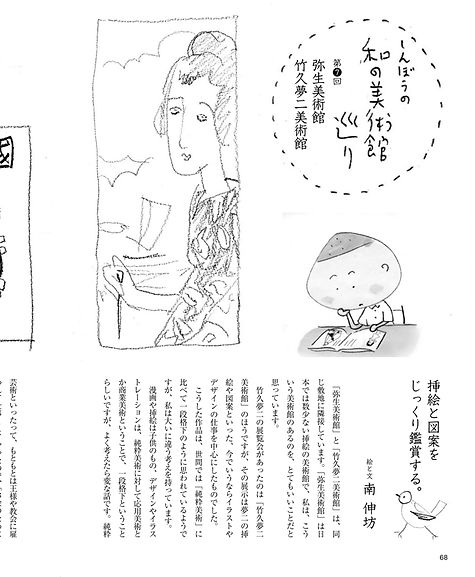 しんぼうの
和の美術館
巡り
第❼回
弥生美術館
竹久夢二美術館
挿絵と図案を
じっくり鑑賞する。
絵と文 南 伸坊
『弥生美術館』と『竹久夢二美術館』は、同
じ敷地に隣接しています。『弥生美術館』は日
本では数少ない挿絵の美術館で、私は、こう
いう美術館のあるのを、とてもいいことだと
思っています。
竹久夢二の展覧会があったのは『竹久夢二
美術館』のほうですが、その展示は夢二の挿
絵や図案といった、今でいうならイラストや
デザインの仕事を中心にしたものでした。
こうした作品は、世間では「純粋美術」に
比べて一段格下のように思われているようで
すが、私は大いに違う考えを持っています。
漫画や挿絵は子供のもの、デザインやイラス
トレーションは、純粋美術に対して応用美術と
か商業美術ということで、一段格下ということ
らしいですが、よく考えたら変な話です。純粋
芸術といったって、もともとは王様や教会に雇
68